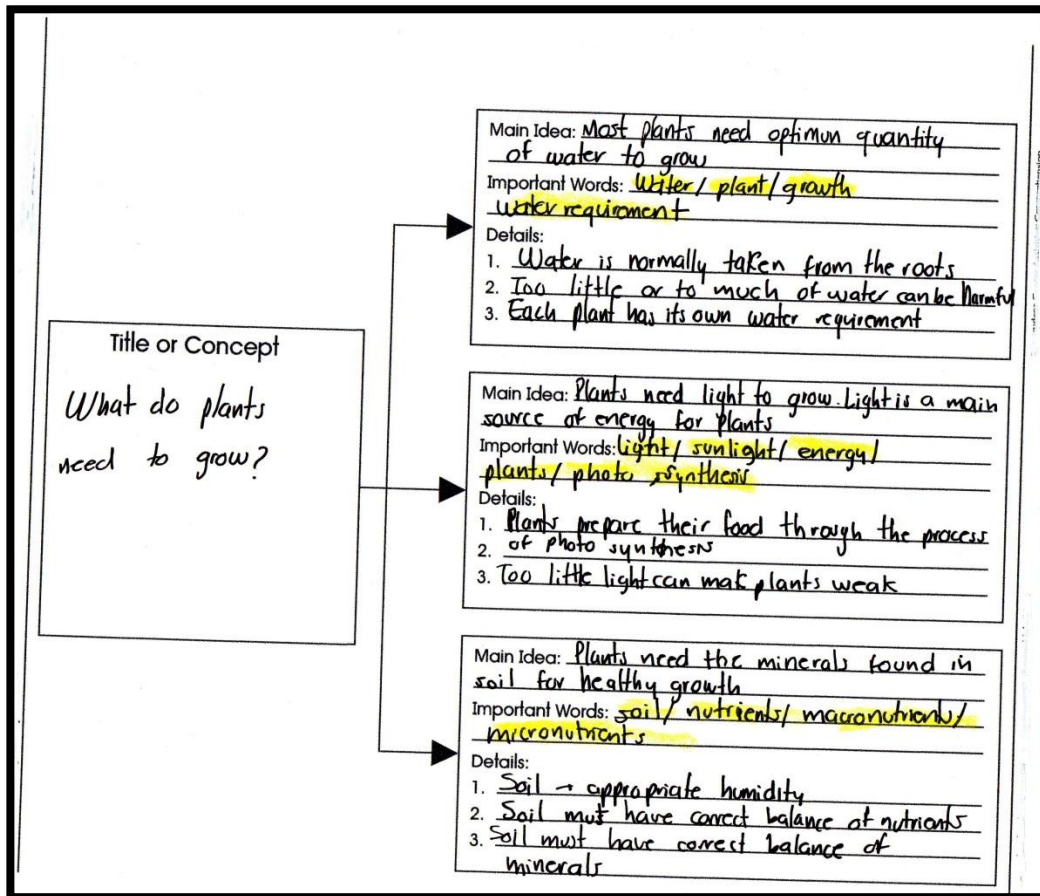 Title or Concept
What do plants
need to grow?
Main Idea: Most plants need optimun quantity
of water to grow
Important Words: Water/ plant/ growth
water requirement
Details:
1. Water is normally taken from the roots
2. Too little or to much of water can be harmful
3. Each plant has its own water requirement
Main Idea: Plants need light to grow. Light is a main
source of energy for plants
Important Words: light/ sunlight/ energy/
plants/ photo synthesis
Details:
1. Plants prepare their food through the process
2. of photo synthesis
3. Too little light can mak plants weak
Main Idea: Plants need the minerals found in
soil for healthy growth
Important Words: soil/ nutrients/ macronutrients/
micronutrients
Details:
1. Soil → appropriate humidity
2. Soil mut have correct balance of nutrients
3. Soil must have correct balance of
minerals